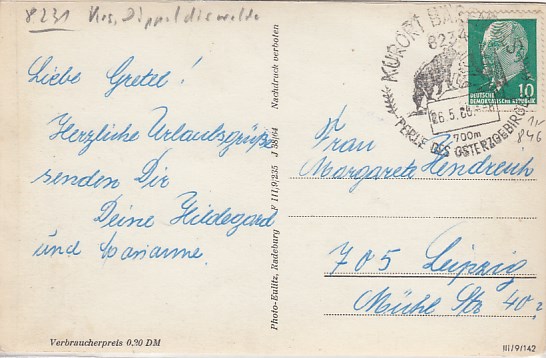 8231 Krs. Dippoldiswalde
Liebe Gretel!
Herzliche Urlaubsgrüße
senden Dir
Deine Hildegard
und Marianne.
Verbraucherpreis 0,20 DM
Photo-Eulitz, Radeburg F III/9/235 J 28/64 Nachdruck verboten
KURORT
DEUTSCHE
DEMOKRATISCHE REPUBLIK
10
26.5.66
700m
PERLE DES OSTERZGEBIRGES
846
Frau
Margarete Hendreich
705 Leipzig
Mühl Str 40
III/9/142